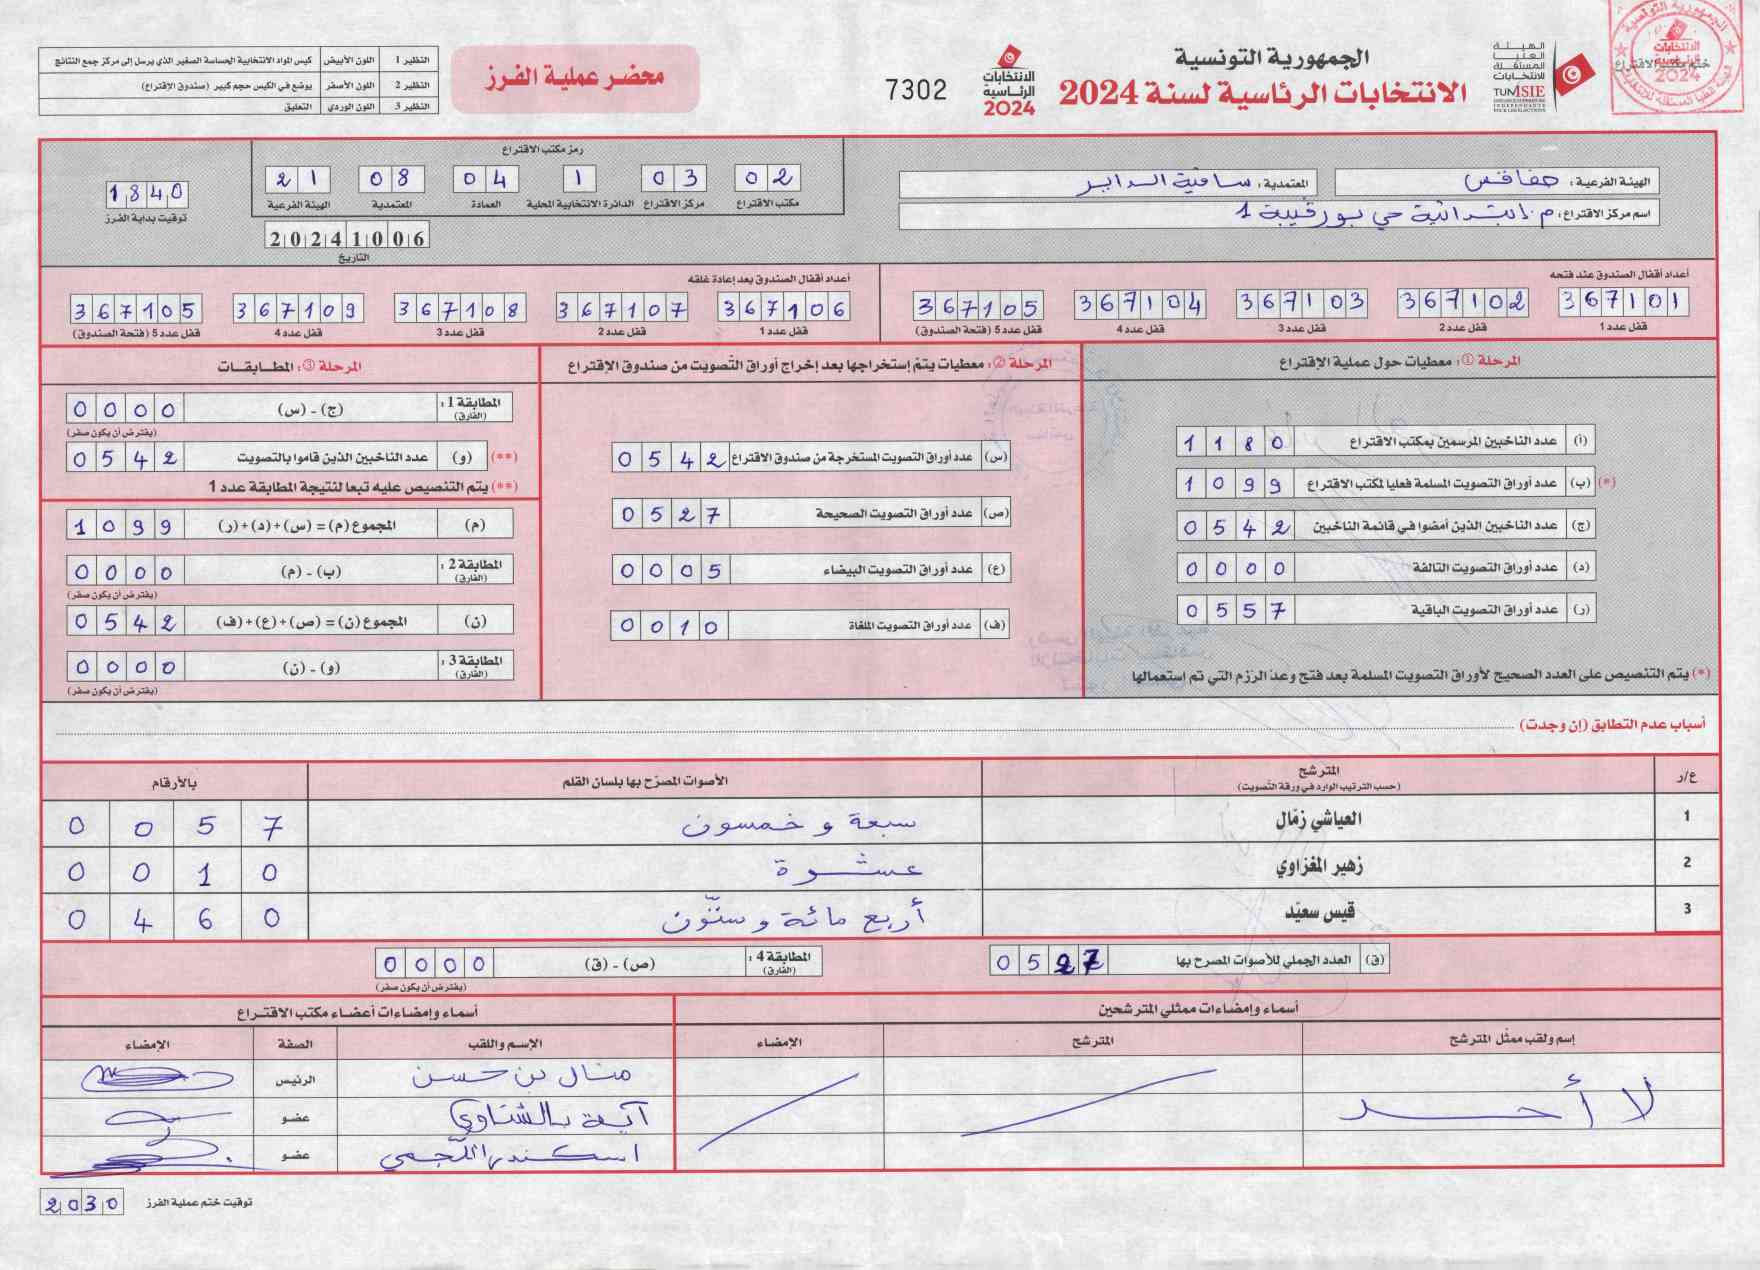 الجمهورية التونسية
الانتخابات الرئاسية لسنة 2024
الهيئة العليا المستقلة للانتخابات
TUNISIE
INSTANCE SUPERIEURE INDEPENDANTE POUR LES ELECTIONS
الانتخابات الرئاسية 2024
7302
محضر عملية الفرز
النظير 1 اللون الأبيض كيس المواد الانتخابية الحساسة الصغير الذي يرسل إلى مركز جمع النتائج
النظير 2 اللون الأصفر يوضع في الكيس حجم كبير (صندوق الإقتراع)
النظير 3 اللون الوردي التعليق
ختم مكتب الاقتراع
الجمهورية التونسية
الانتخابات الرئاسية 2024
الهيئة الفرعية: صفاقس
المعتمدية: ساقية الداير
اسم مركز الاقتراع: م. ابتدائية حي بورقيبة 1
رمز مكتب الاقتراع
02 03 1 04 08 21
مكتب الاقتراع مركز الاقتراع الدائرة الانتخابية المحلية العمادة المعتمدية الهيئة الفرعية
20241006
التاريخ
1840
توقيت بداية الفرز
أعداد أقفال الصندوق عند فتحه
367101 367102 367103 367104 367105
قفل عدد 1 قفل عدد 2 قفل عدد 3 قفل عدد 4 قفل عدد 5 (فتحة الصندوق)
أعداد أقفال الصندوق بعد إعادة غلقه
367106 367107 367108 367109 367105
قفل عدد 1 قفل عدد 2 قفل عدد 3 قفل عدد 4 قفل عدد 5 (فتحة الصندوق)
المرحلة ①: معطيات حول عملية الإقتراع
(أ) عدد الناخبين المرسمين بمكتب الاقتراع 1180
(*) (ب) عدد أوراق التصويت المسلمة فعليا لمكتب الاقتراع 1099
(ج) عدد الناخبين الذين أمضوا في قائمة الناخبين 0542
(د) عدد أوراق التصويت التالفة 0000
(ر) عدد أوراق التصويت الباقية 0557
(*) يتم التنصيص على العدد الصحيح لأوراق التصويت المسلمة بعد فتح وعدّ الرزم التي تم إستعمالها
المرحلة ②: معطيات يتمّ إستخراجها بعد إخراج أوراق التّصويت من صندوق الإقتراع
(س) عدد أوراق التصويت المستخرجة من صندوق الاقتراع 0542
(ص) عدد أوراق التصويت الصحيحة 0527
(ع) عدد أوراق التصويت البيضاء 0005
(ف) عدد أوراق التصويت الملغاة 0010
المرحلة ③: المطـابقـات
المطابقة 1: (الفارق) (ج) - (س) 0000
(يفترض أن يكون صفر)
(**) (و) عدد الناخبين الذين قاموا بالتصويت 0542
(**) يتم التنصيص عليه تبعا لنتيجة المطابقة عدد 1
(م) المجموع (م) = (س)+(د)+(ر) 1099
المطابقة 2: (الفارق) (ب) - (م) 0000
(يفترض أن يكون صفر)
(ن) المجموع (ن) = (ص)+(ع)+(ف) 0542
المطابقة 3: (الفارق) (و) - (ن) 0000
(يفترض أن يكون صفر)
أسباب عدم التطابق (إن وجدت)
ع/ر المترشح (حسب الترتيب الوارد في ورقة التّصويت) الأصوات المصرّح بها بلسان القلم بالأرقام
1 العياشي زمّال سبعة و خمسون 0057
2 زهير المغزاوي عشرة 0010
3 قيس سعيّد أربع مائة و ستّون 0460
(ق) العدد الجملي للأصوات المصرح بها 0527
المطابقة 4: (الفارق) (ص) - (ق) 0000
(يفترض أن يكون صفر)
أسماء وإمضاءات ممثلي المترشحين
إسم ولقب ممثّل المترشح المترشح الإمضاء
لا أحد
أسماء وإمضاءات أعضاء مكتب الاقتراع
الإسم واللقب الصفة الإمضاء
منال بن حسن الرئيس
آية بالشتاوي عضو
اسكندر اللجمي عضو
توقيت ختم عملية الفرز 2030